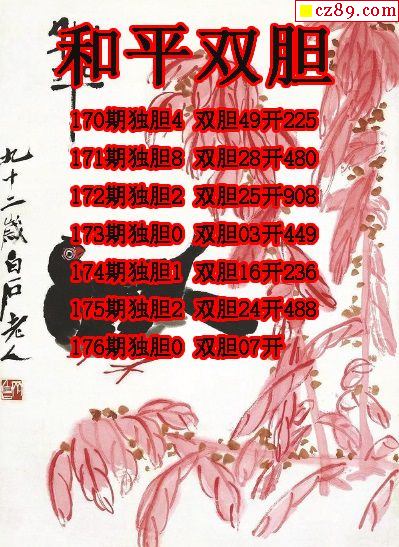 cz89.com
和平双胆
170期独胆4 双胆49开225
171期独胆8 双胆28开480
172期独胆2 双胆25开908
173期独胆0 双胆03开449
174期独胆1 双胆16开236
175期独胆2 双胆24开488
176期独胆0 双胆07开
九十二岁白石老人